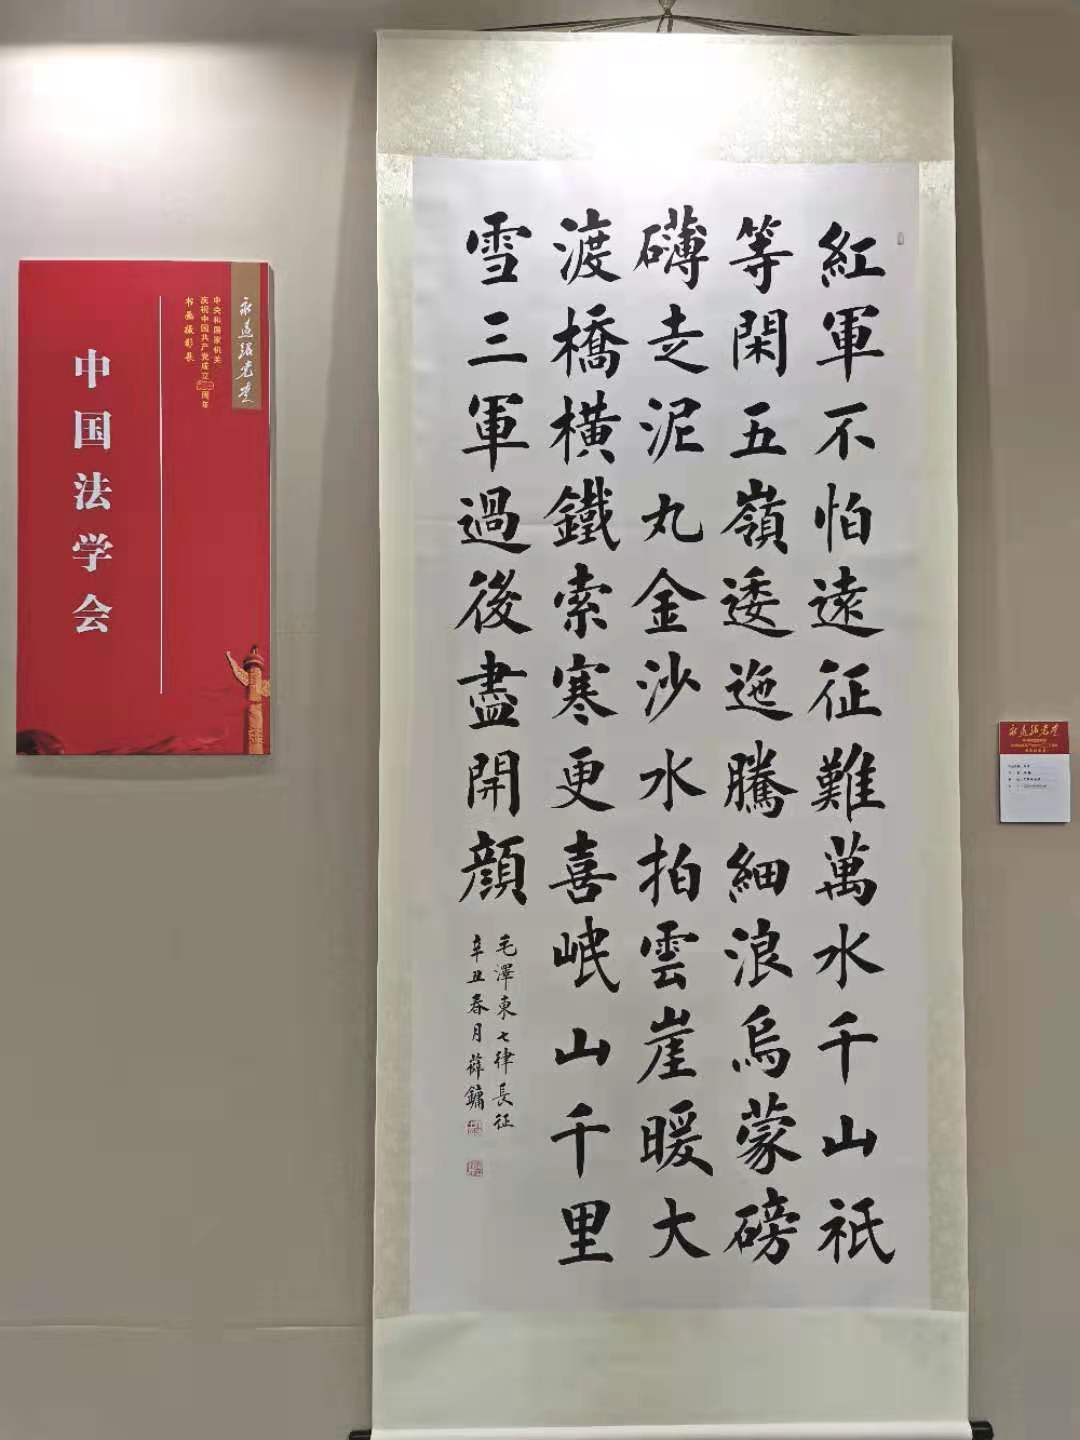 紅軍不怕遠征難萬水千山祇
等閑五嶺逶迤騰細浪烏蒙磅
礴走泥丸金沙水拍雲崖暖大
渡橋橫鐵索寒更喜岷山千里
雪三軍過後盡開顔
毛澤東七律長征
辛丑春月薛鏞
永远跟党走
中央和国家机关
庆祝中国共产党成立100周年
书画摄影展
中国法学会
永远跟党走